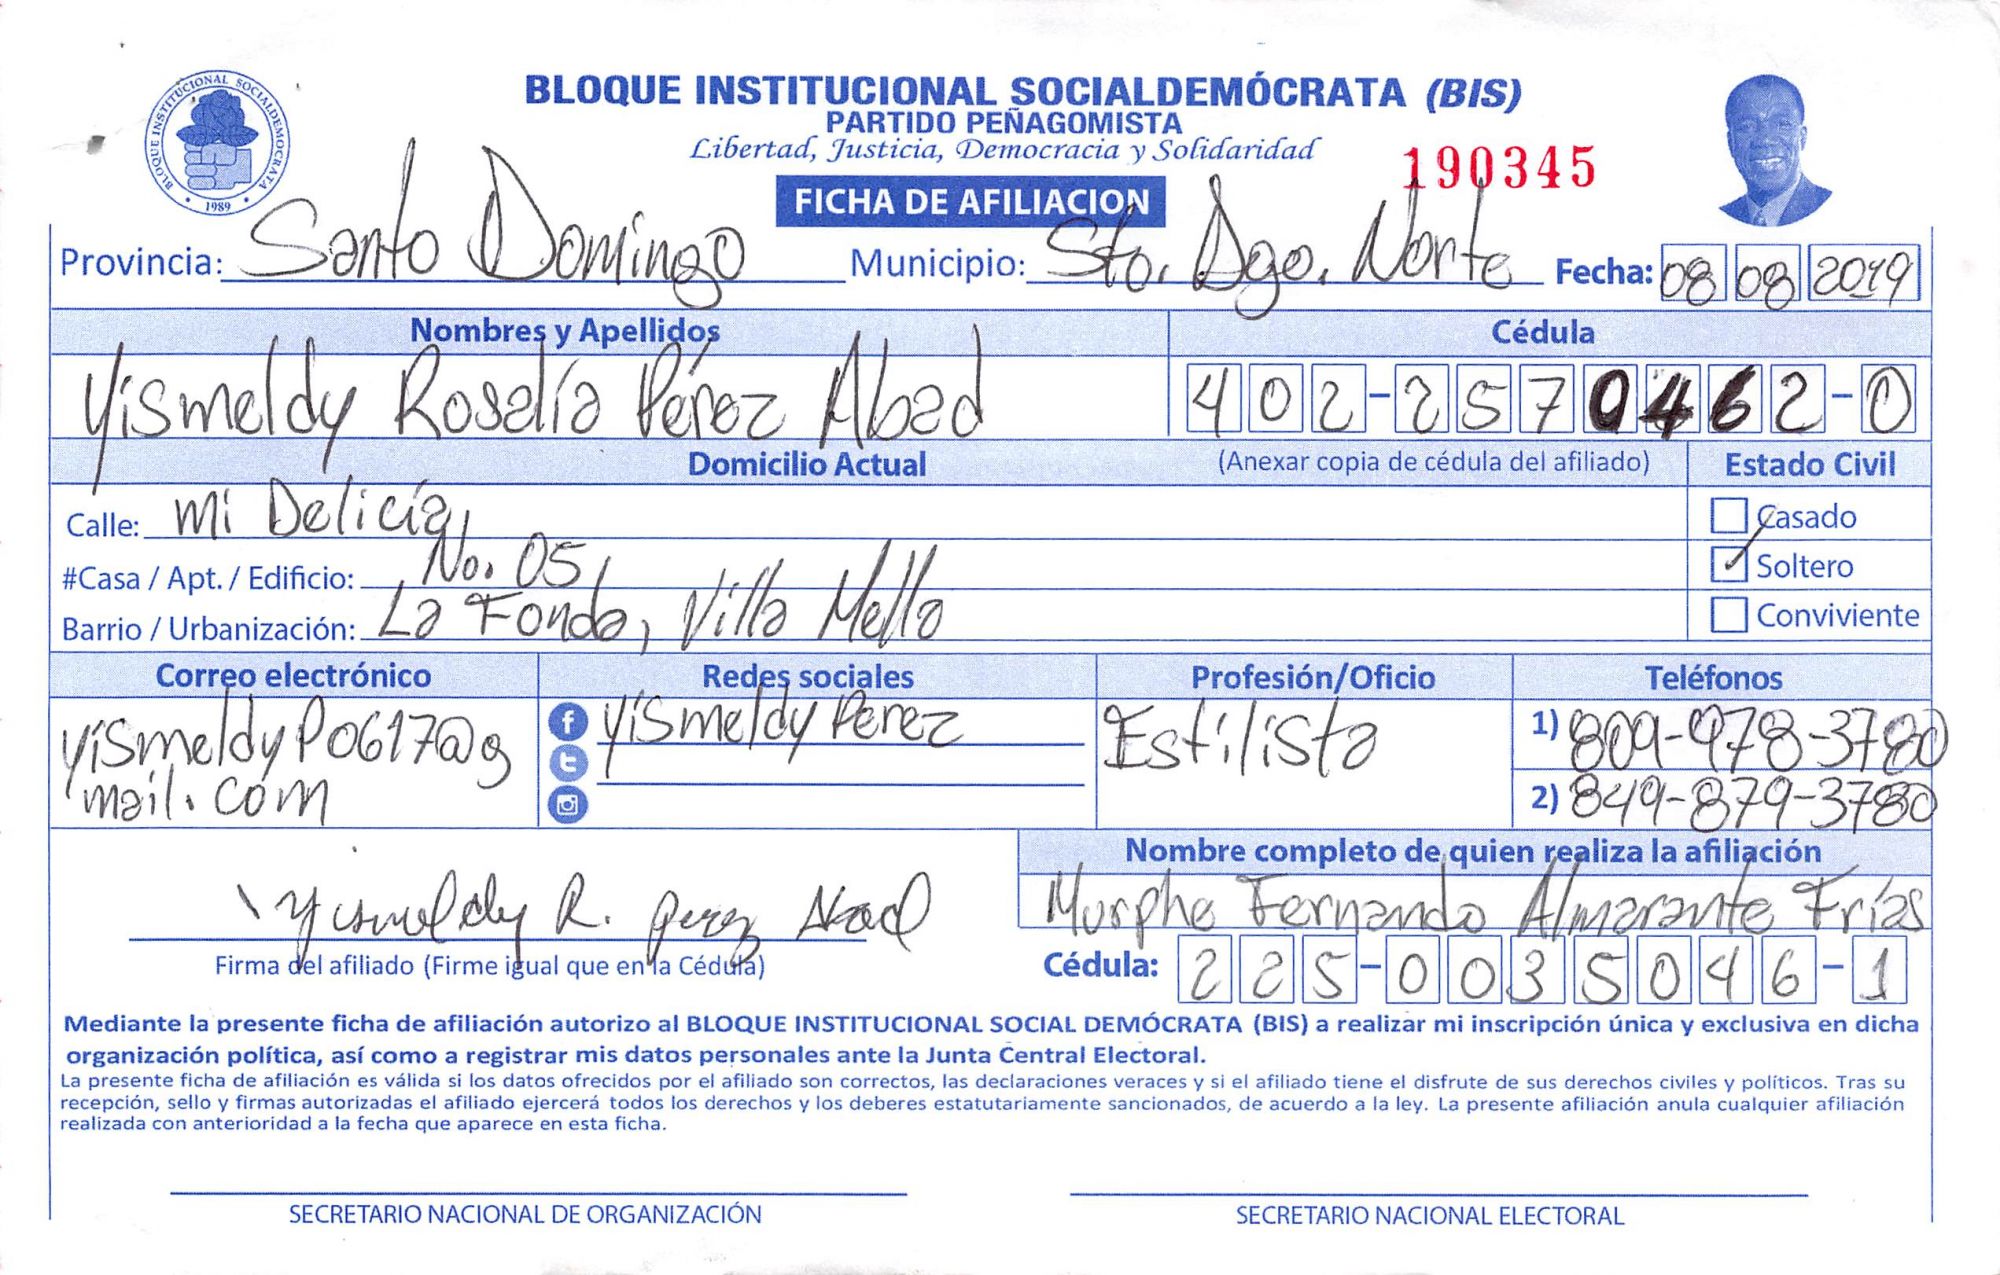 BLOQUE INSTITUCIONAL SOCIALDEMÓCRATA (BIS)
PARTIDO PEÑAGOMISTA
Libertad, Justicia, Democracia y Solidaridad
190345
FICHA DE AFILIACION
BLOQUE INSTITUCIONAL SOCIALDEMOCRATA
1989
Provincia: Santo Domingo Municipio: Sto. Dgo. Norte Fecha: 08 08 2019
Nombres y Apellidos Cédula
Yismeldy Rosalía Pérez Abad 402-2570462-0
Domicilio Actual (Anexar copia de cédula del afiliado) Estado Civil
Calle: Mi Delicia, Casado
#Casa / Apt. / Edificio: No. 05, Soltero
Barrio / Urbanización: La Fonda, Villa Mella Conviviente
Correo electrónico Redes sociales Profesión/Oficio Teléfonos
yismeldyP0617@g Yismeldy Perez Estilista 1) 809-978-3780
mail.com 2) 849-879-3780
Nombre completo de quien realiza la afiliación
Yismeldy R. perez Abad Murphe Fernando Almarante Frías
Firma del afiliado (Firme igual que en la Cédula) Cédula: 225-0035046-1
Mediante la presente ficha de afiliación autorizo al BLOQUE INSTITUCIONAL SOCIAL DEMÓCRATA (BIS) a realizar mi inscripción única y exclusiva en dicha
organización política, así como a registrar mis datos personales ante la Junta Central Electoral.
La presente ficha de afiliación es válida si los datos ofrecidos por el afiliado son correctos, las declaraciones veraces y si el afiliado tiene el disfrute de sus derechos civiles y políticos. Tras su
recepción, sello y firmas autorizadas el afiliado ejercerá todos los derechos y los deberes estatutariamente sancionados, de acuerdo a la ley. La presente afiliación anula cualquier afiliación
realizada con anterioridad a la fecha que aparece en esta ficha.
SECRETARIO NACIONAL DE ORGANIZACIÓN SECRETARIO NACIONAL ELECTORAL